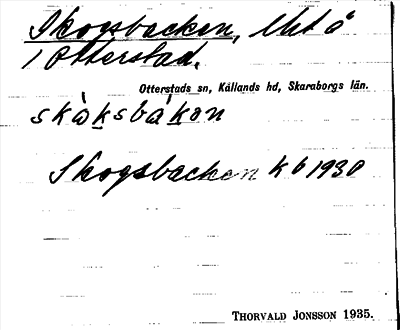 Skogsbacken, Uht å
1 Otterstad.
Otterstads sn, Kållands hd, Skaraborgs län.
skòksbákən
Skogsbacken kb 1930
THORVALD JONSSON 1935.